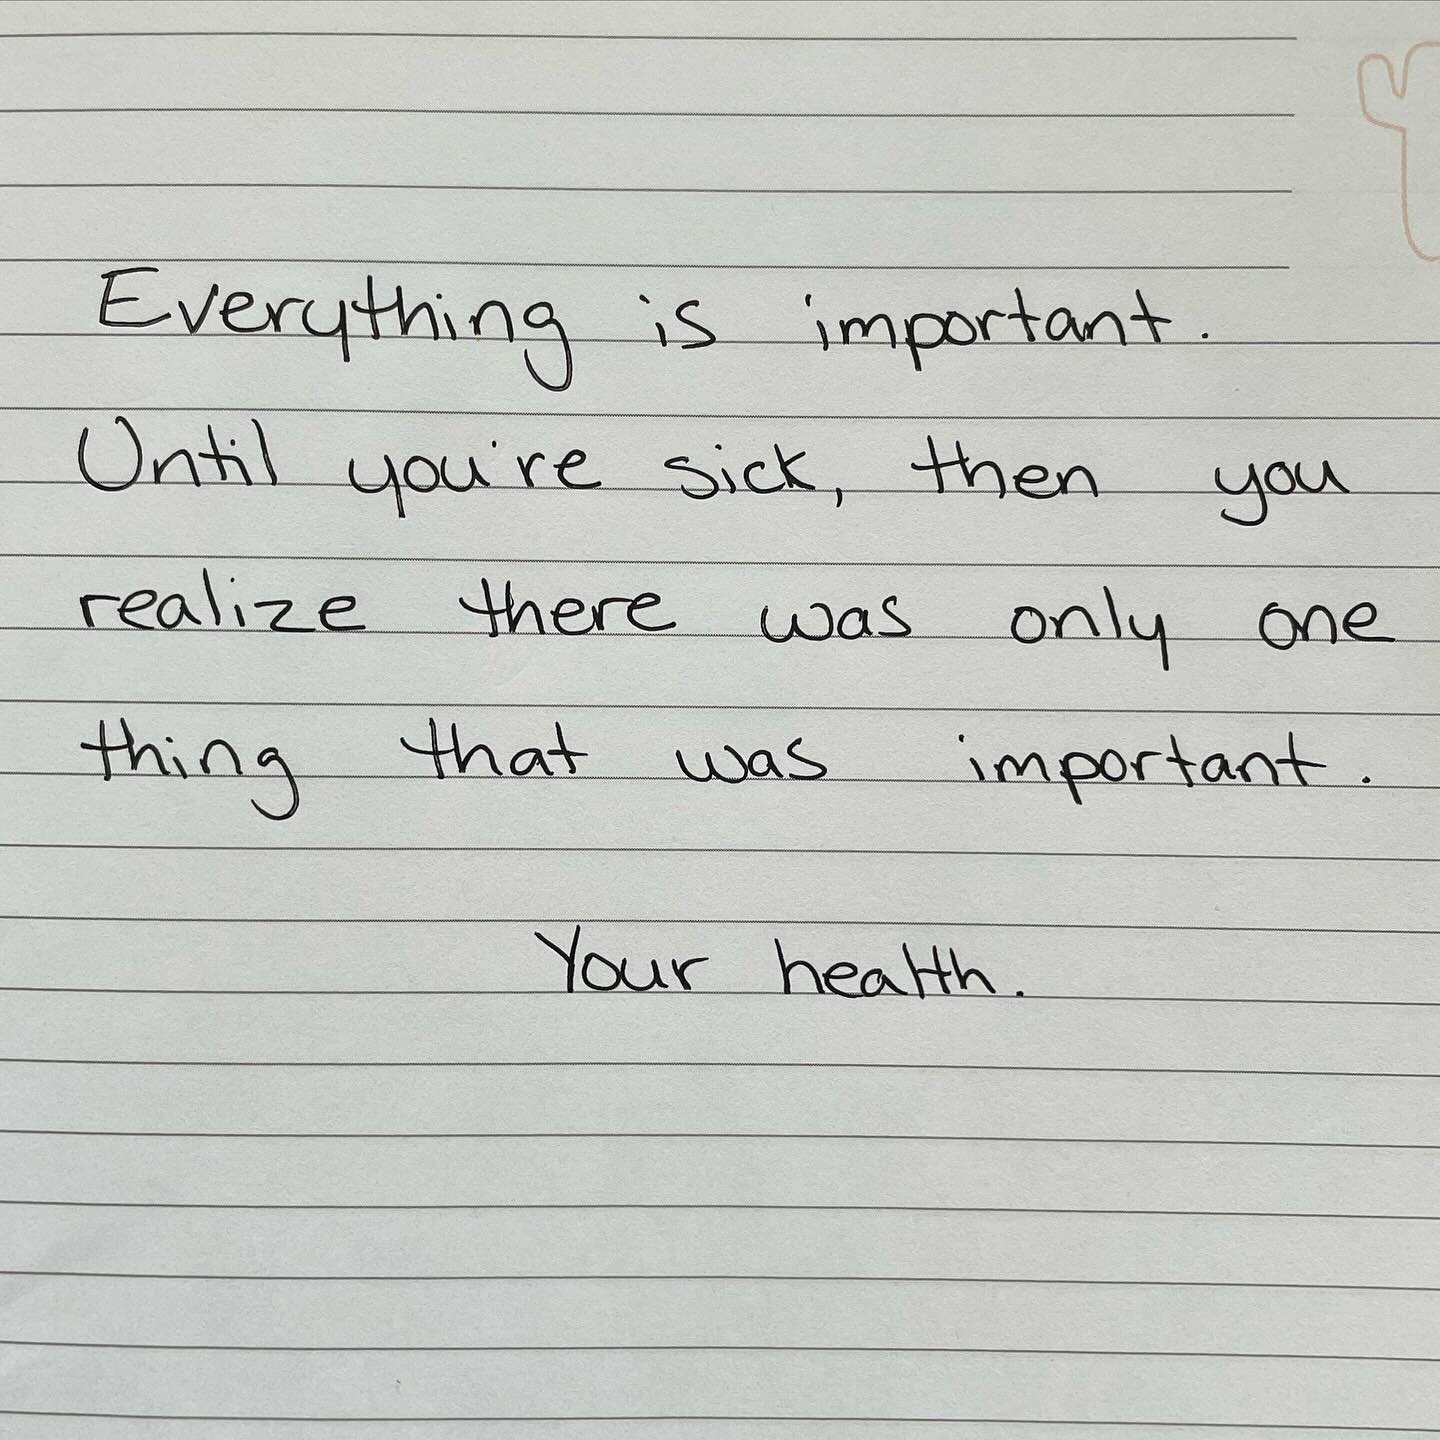 Everything is important.
Until you're sick, then you
realize there was only one
thing that was important.
Your health.